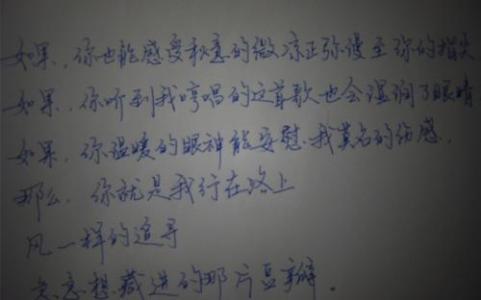 如果,你也能感受秋意的微凉正弥漫至你的指尖
如果,你听到我哼唱的这首歌也会湿润了眼睛
如果,你温暖的眼神能安慰我莫名的伤感,
那么,你就是我行在路上
风一样的追寻
想藏进的那片豆瓣。